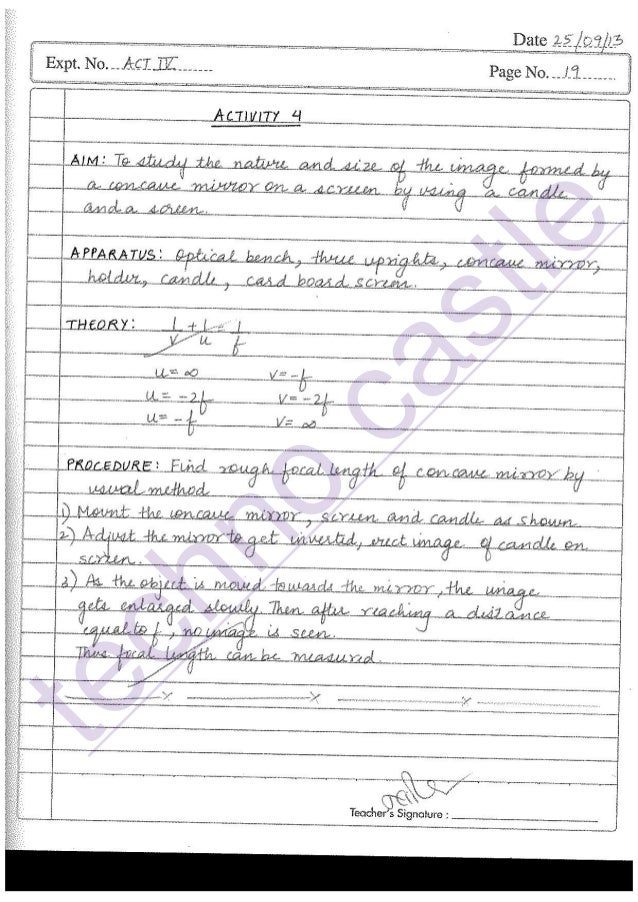 Date 25/09/13
Expt. No. ACT IV
Page No. 19
ACTIVITY 4
AIM: To study the nature and size of the image formed by
a concave mirror on a screen by using a candle
and a screen.
APPARATUS: Optical bench, three uprights, concave mirror,
holder, candle, card board screen.
THEORY: 1/v + 1/u = 1/f
u = ∞ v = -f
u = -2f v = -2f
u = -f v = ∞
PROCEDURE: Find rough focal length of concave mirror by
usual method
1) Mount the concave mirror, screen and candle as shown
2) Adjust the mirror to get inverted, erect image of candle on
screen.
3) As the object is moved towards the mirror, the image
gets enlarged slowly. Then after reaching a distance
equal to f, no image is seen.
Thus focal length can be measured.
Teacher's Signature :
techno castle